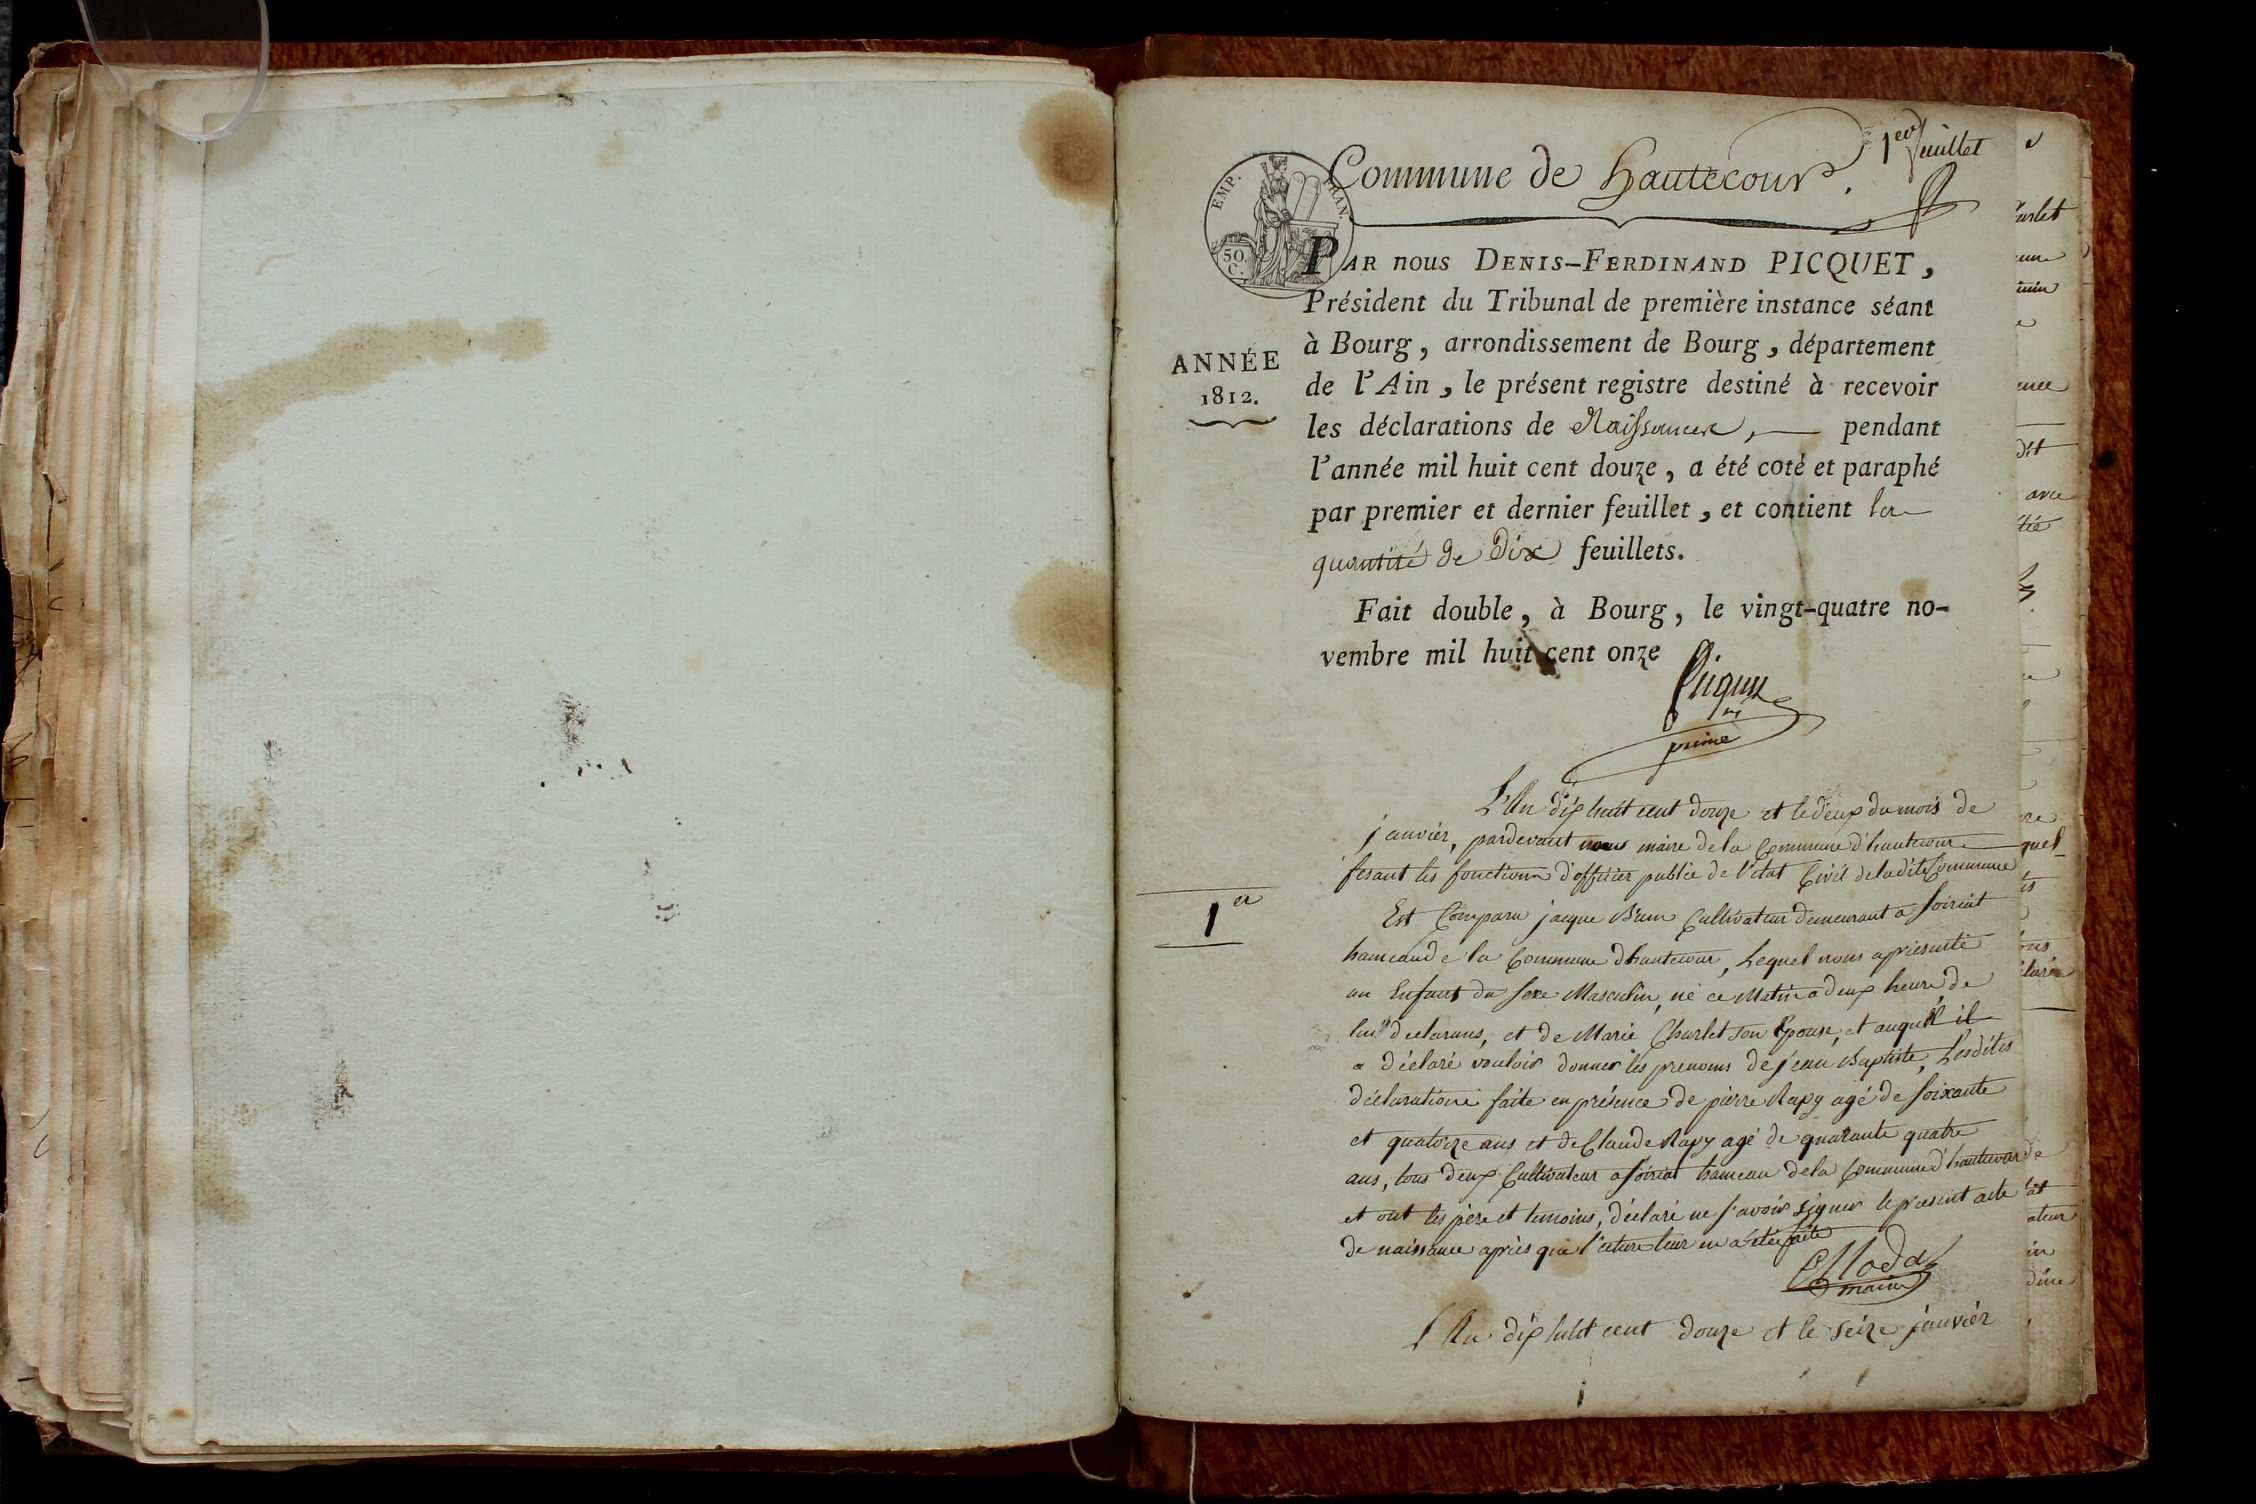 1er feuillet
Commune de hautecour.
EMP. FRAN.
50 C.
PAR nous DENIS-FERDINAND PICQUET,
Président du Tribunal de première instance séant
à Bourg, arrondissement de Bourg, département
ANNÉE
1812.
de l'Ain, le présent registre destiné à recevoir
les déclarations de Naissances, pendant
l'année mil huit cent douze, a été coté et paraphé
par premier et dernier feuillet, et contient la
quantité de Dix feuillets.
Fait double, à Bourg, le vingt-quatre no-
vembre mil huit cent onze
Picquet
L'An dix huit cent douze et le deux du mois de
janvier, pardevant nous maire de la Commune d'hautecour
fesant les fonctions d'officier public de l'état Civil de la dite Commune
1er
Est Comparu jacque Brun Cultivateur demeurant a Soiriat
hameau de la Commune d'hautecour, Lequel nous a présenté
un Enfant du sexe Masculin, né ce Matin a deux heure de
lui declarans, et de Marie Charlet son Epouse, et auquel il
a déclaré vouloir donner les prenoms de jean Baptiste, Lesdites
déclarations faite en présence de pierre Rapy agé de soixante
et quatorze ans et de Claude Rapy agé de quarante quatre
ans, tous deux Cultivateur a Soiriat hameau de la Commune d'hautecour
et ont les père et temoins, déclaré ne savoir signer le présent acte
de naissance après que l'ecture leur en a été faite
maire
L'An dix huit cent douze et le seize janvier